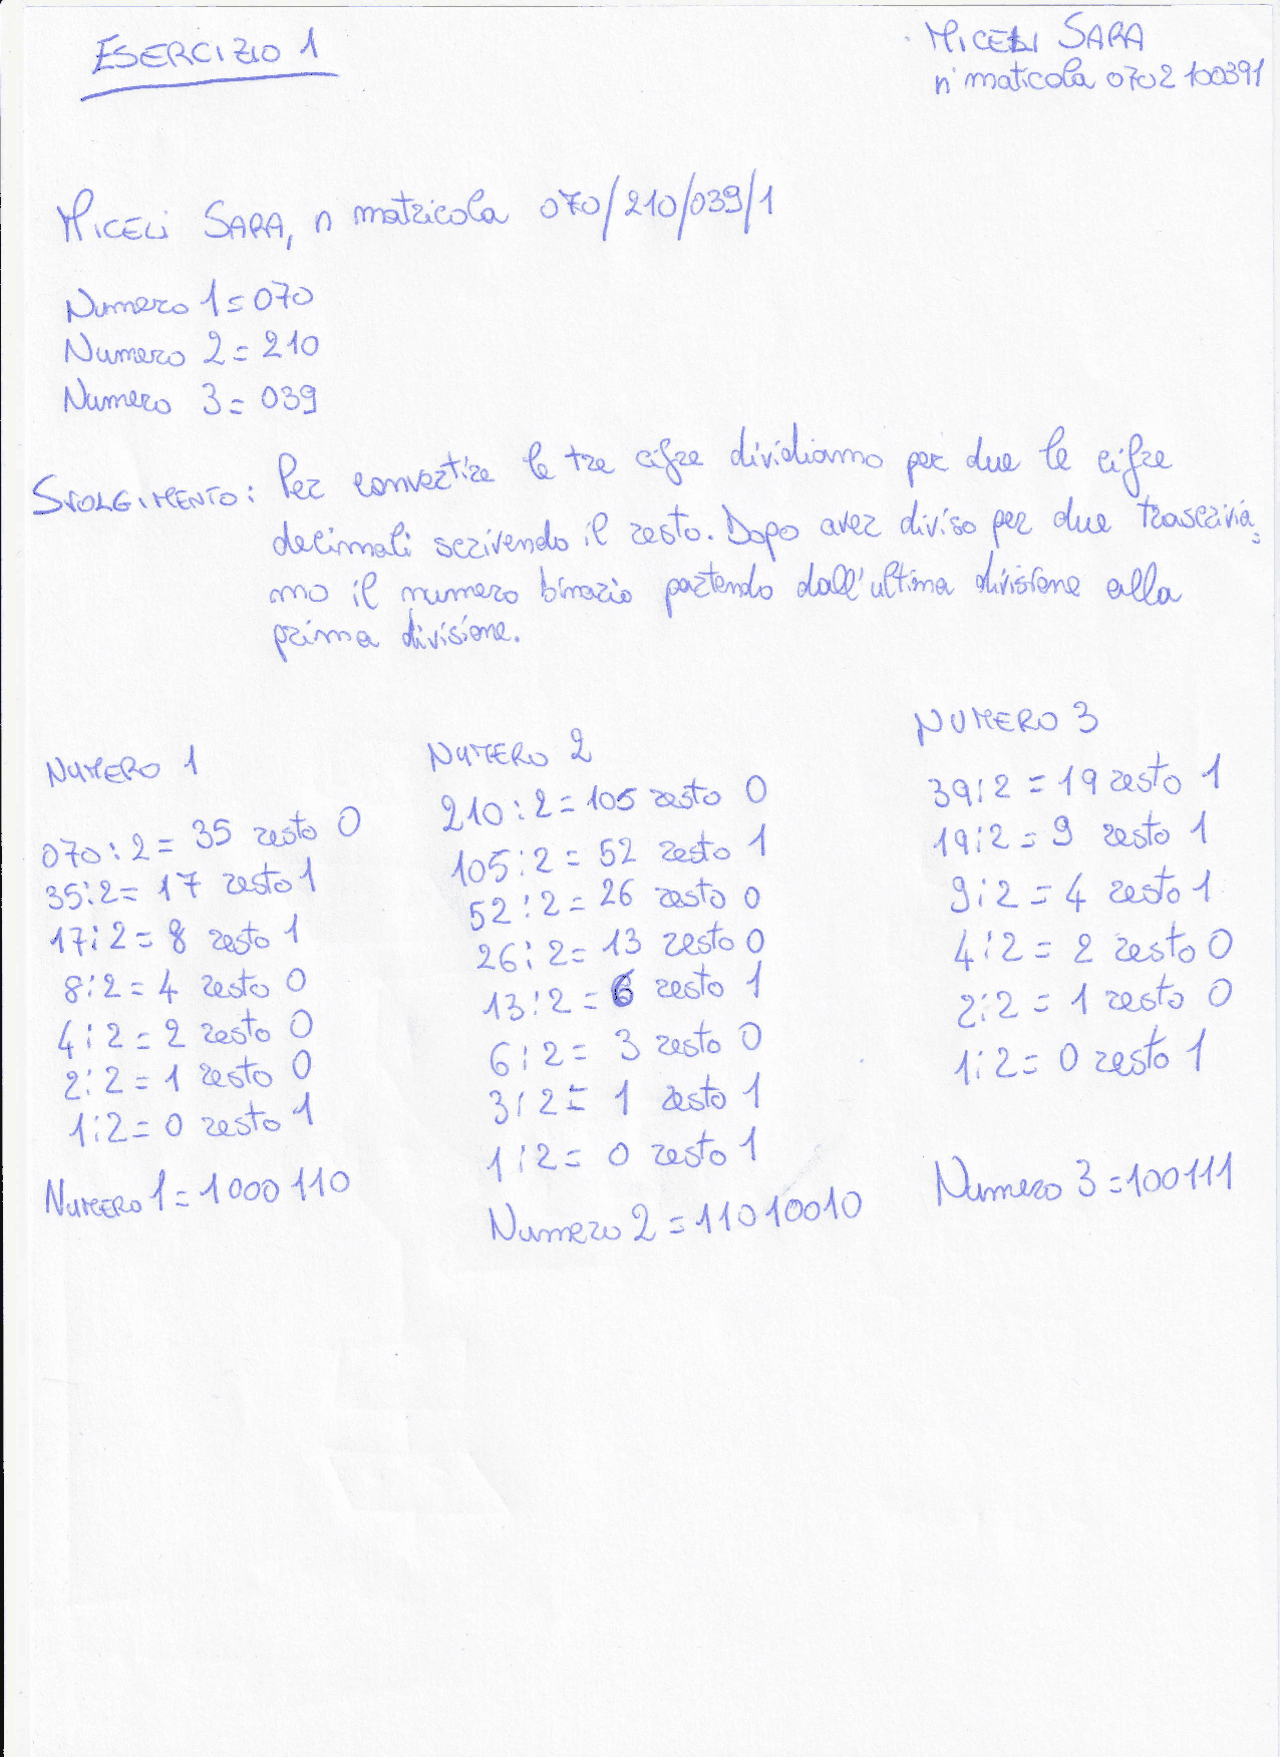 ESERCIZIO 1
MICELI SARA
n° maticola 0702100391
MICELI SARA, n matricola 070/210/039/1
Numero 1=070
Numero 2=210
Numero 3=039
SVOLGIMENTO: Per convertire le tre cifre dividiamo per due le cifre
decimali scrivendo il resto. Dopo aver diviso per due trascrivia=
mo il numero binario partendo dall'ultima divisione alla
prima divisione.
NUMERO 1
070:2= 35 resto 0
35:2= 17 resto 1
17:2= 8 resto 1
8:2= 4 resto 0
4:2= 2 resto 0
2:2= 1 resto 0
1:2= 0 resto 1
NUMERO 1=1000110
NUMERO 2
210:2=105 resto 0
105:2= 52 resto 1
52:2= 26 resto 0
26:2= 13 resto 0
13:2= 6 resto 1
6:2= 3 resto 0
3:2= 1 resto 1
1:2= 0 resto 1
Numero 2=11010010
NUMERO 3
39:2=19 resto 1
19:2= 9 resto 1
9:2= 4 resto 1
4:2= 2 resto 0
2:2= 1 resto 0
1:2= 0 resto 1
Numero 3=100111